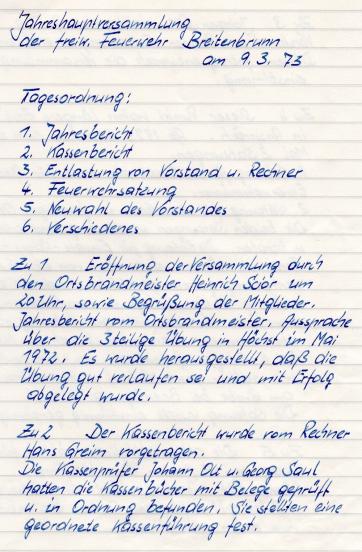 Jahreshauptversammlung
der freiw. Feuerwehr Breitenbrunn
am 9. 3. 73
Tagesordnung:
1. Jahresbericht
2. Kassenbericht
3. Entlastung von Vorstand u. Rechner
4. Feuerwehrsatzung
5. Neuwahl des Vorstandes
6. Verschiedenes
Zu 1 Eröffnung der Versammlung durch
den Ortsbrandmeister Heinrich Scior um
20 Uhr, sowie Begrüßung der Mitglieder.
Jahresbericht vom Ortsbrandmeister. Aussprache
über die 3 teilige Übung in Höchst im Mai
1972. Es wurde herausgestellt, daß die
Übung gut verlaufen sei und mit Erfolg
abgelegt wurde.
Zu 2 Der Kassenbericht wurde vom Rechner
Hans Greim vorgetragen.
Die Kassenprüfer Johann Olt u. Georg Saul
hatten die Kassenbücher mit Belege geprüft
u. in Ordnung befunden. Sie stellten eine
geordnete Kassenführung fest.